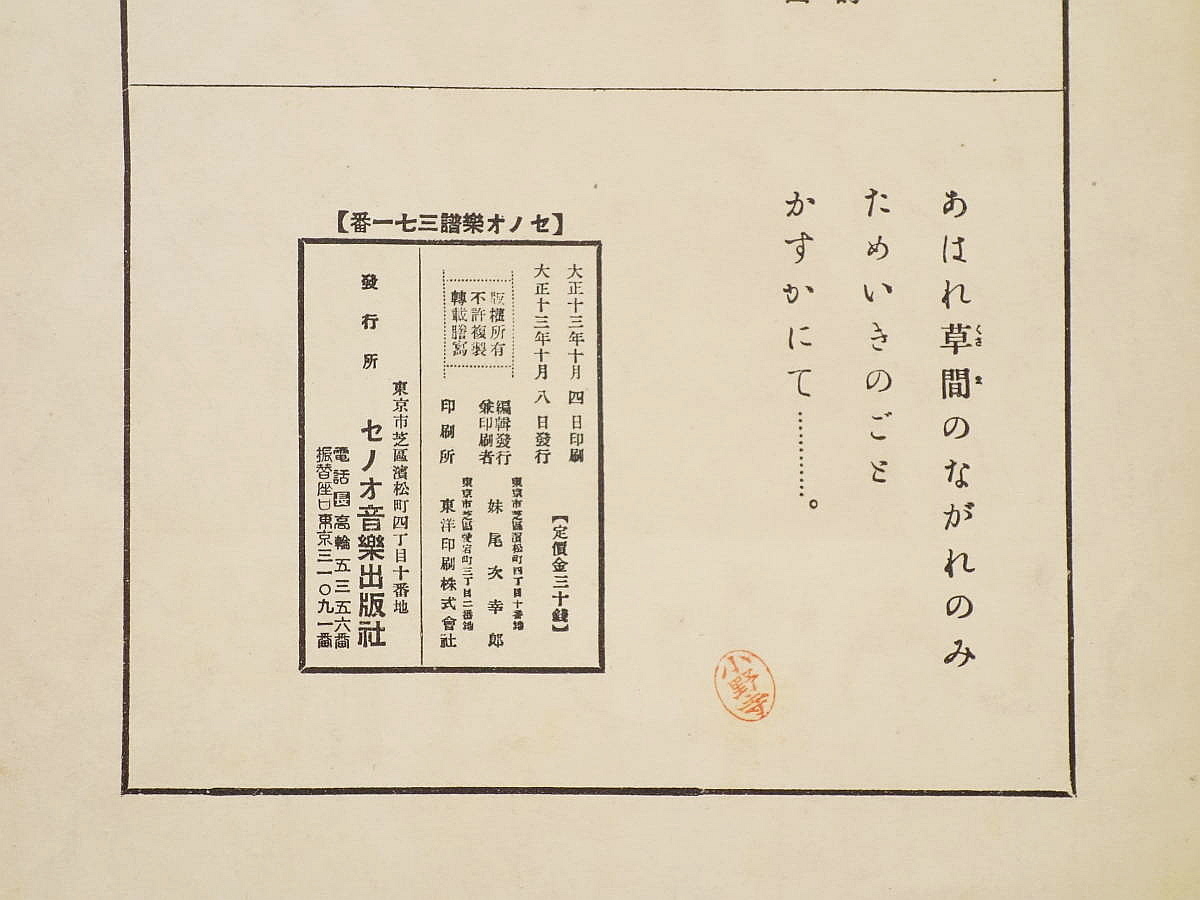 あはれ草間のながれのみ
ためいきのごと
かすかにて…………。
【セノオ樂譜三七一番】
大正十三年十月四日印刷
大正十三年十月八日發行
【定價金三十錢】
版權所有
不許複製
轉載謄寫
編輯發行
兼印刷者
東京市芝區濱松町四丁目十番地
妹尾次幸郎
印刷所
東京市芝區愛宕町三丁目二番地
東洋印刷株式會社
發行所
東京市芝區濱松町四丁目十番地
セノオ音樂出版社
電話長高輪五三五六番
振替座口東京三一〇九一番
小野